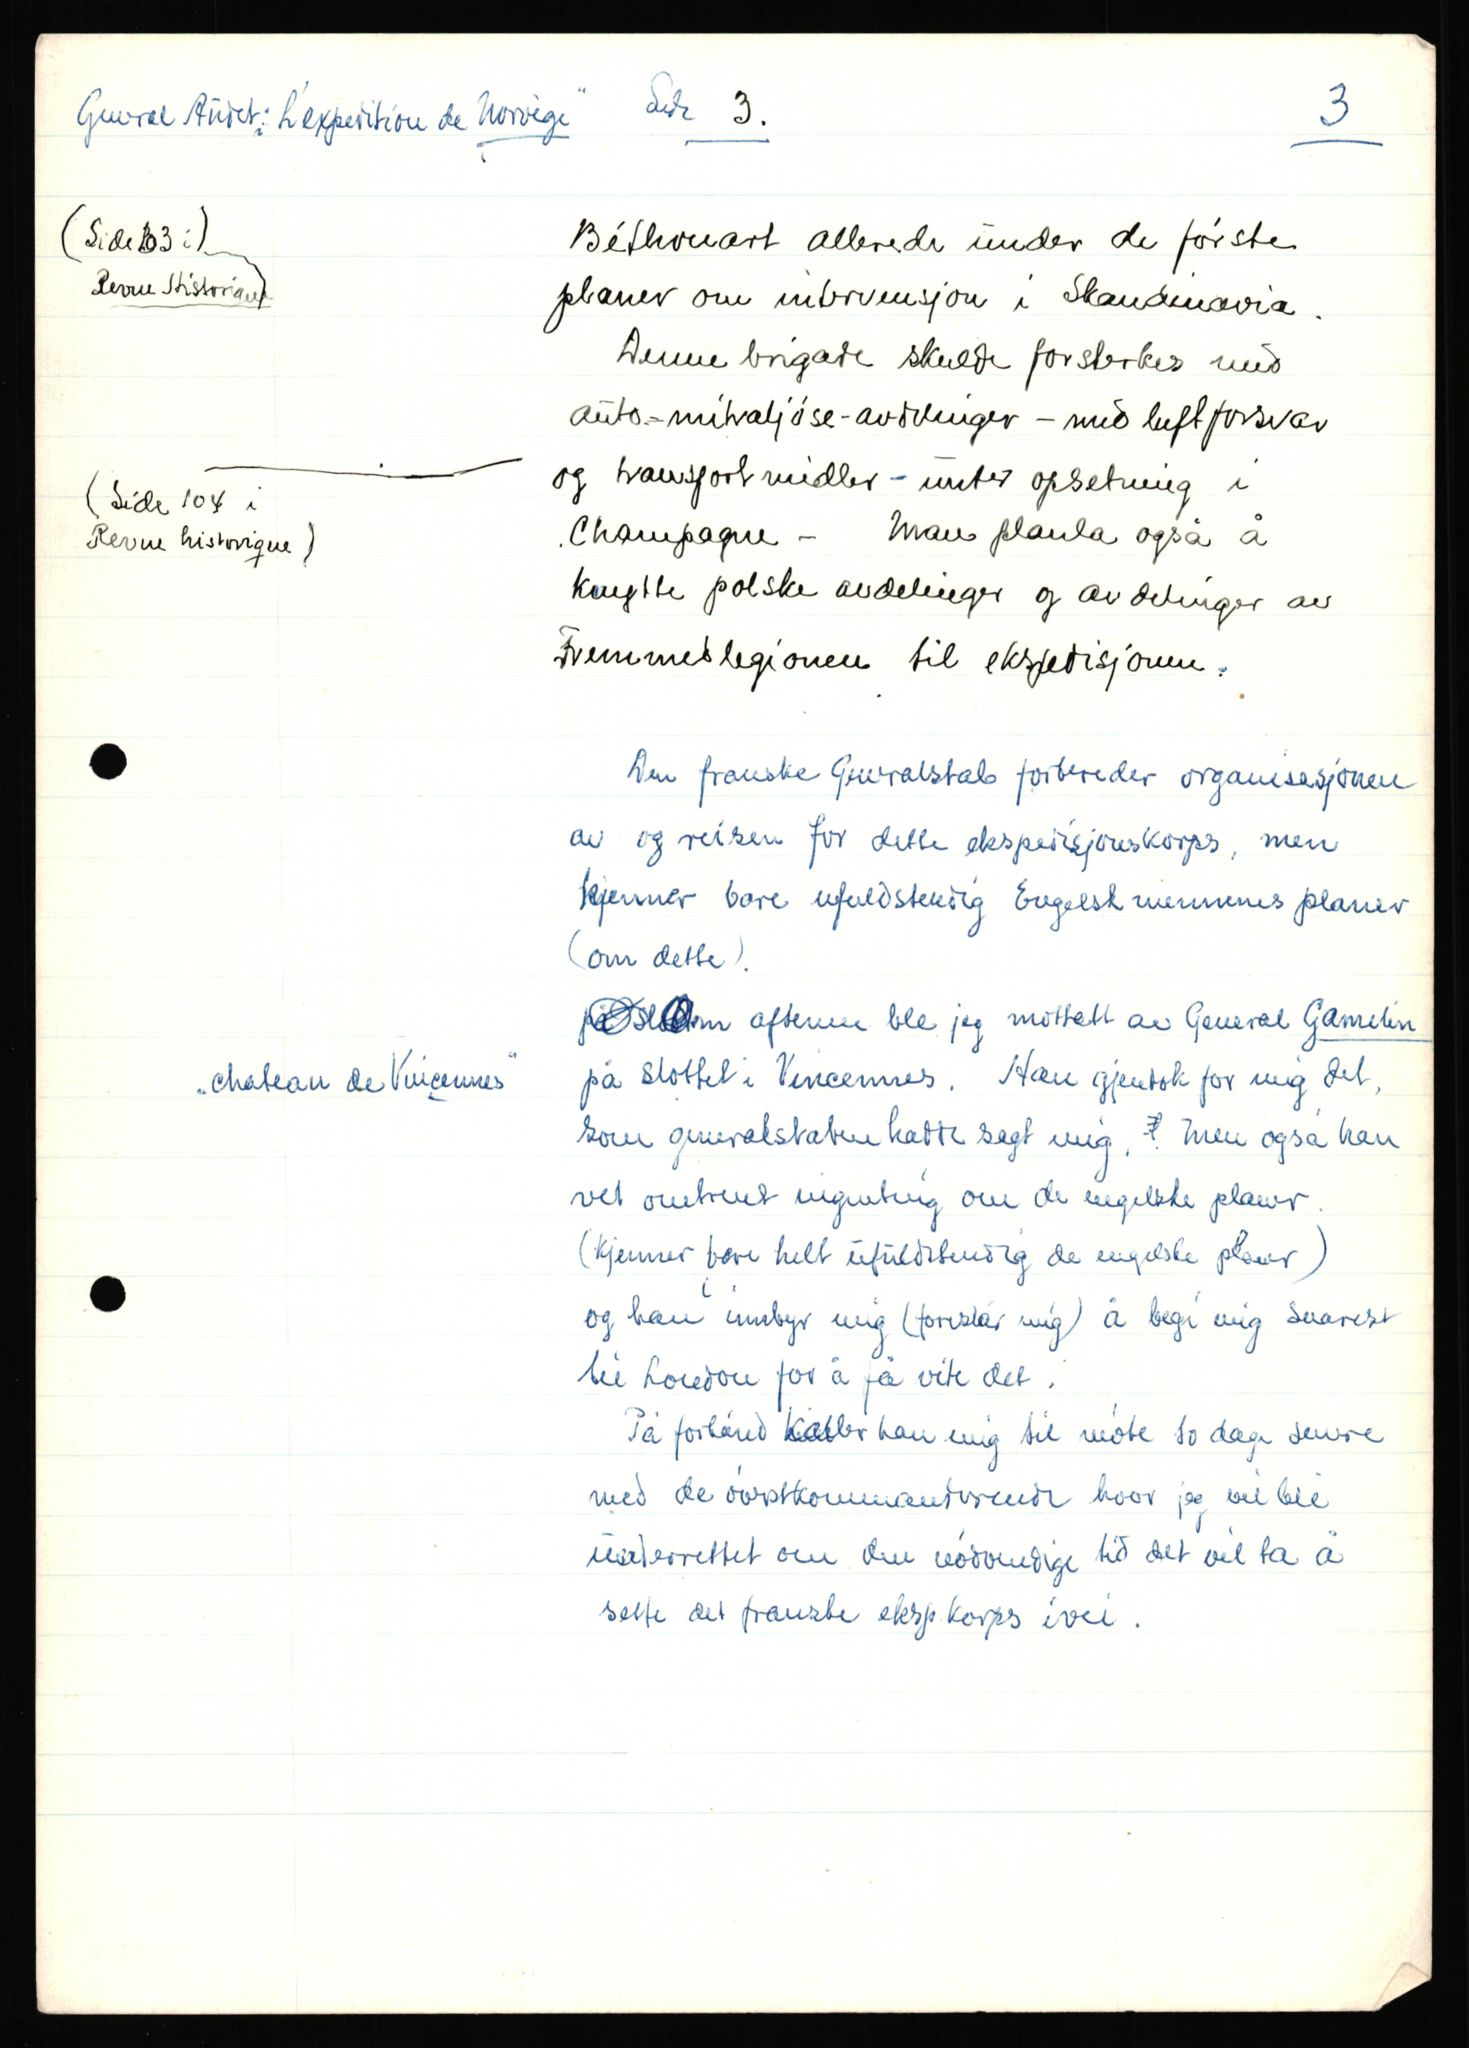 General Audet: "L'expedition de Norvège" Side 3.
3
(Side 103 i)
Revue Historique
Béthouart allerede under de förste
planer om intervensjon i Skandinavia.
Denne brigade skulde forsterkes med
auto-mitraljöse-avdelinger - med luftforsvar
og transportmidler - under opsetning i
(Side 104 i
Revue historique)
Champagne - Man planla også å
knytte polske avdelinger og avdelinger av
Fremmedlegionen til ekspedisjonen.
Den franske Generalstab forbereder organisasjonen
av og reisen for dette ekspedisjonskorps, men
kjenner bare ufuldstendig Engelskmennenes planer
(om dette).
Om aftenen ble jeg mottatt av General Gamelin
"chateau de Vincennes"
på slottet i Vincennes. Han gjentok for mig det,
som generalstaben hadde sagt mig. Men også han
vet omtrent ingenting om de engelske planer.
(kjenner bare helt ufuldstendig de engelske planer)
og han innbyr mig (foreslår mig) å begi mig snarest
til London for å få vite det.
På forhånd kaller han mig til möte to dage senere
med de överstkommanderende hvor jeg vil bli
underrettet om den nödvendige tid det vil ta å
sette det franske eksp.korps ivei.